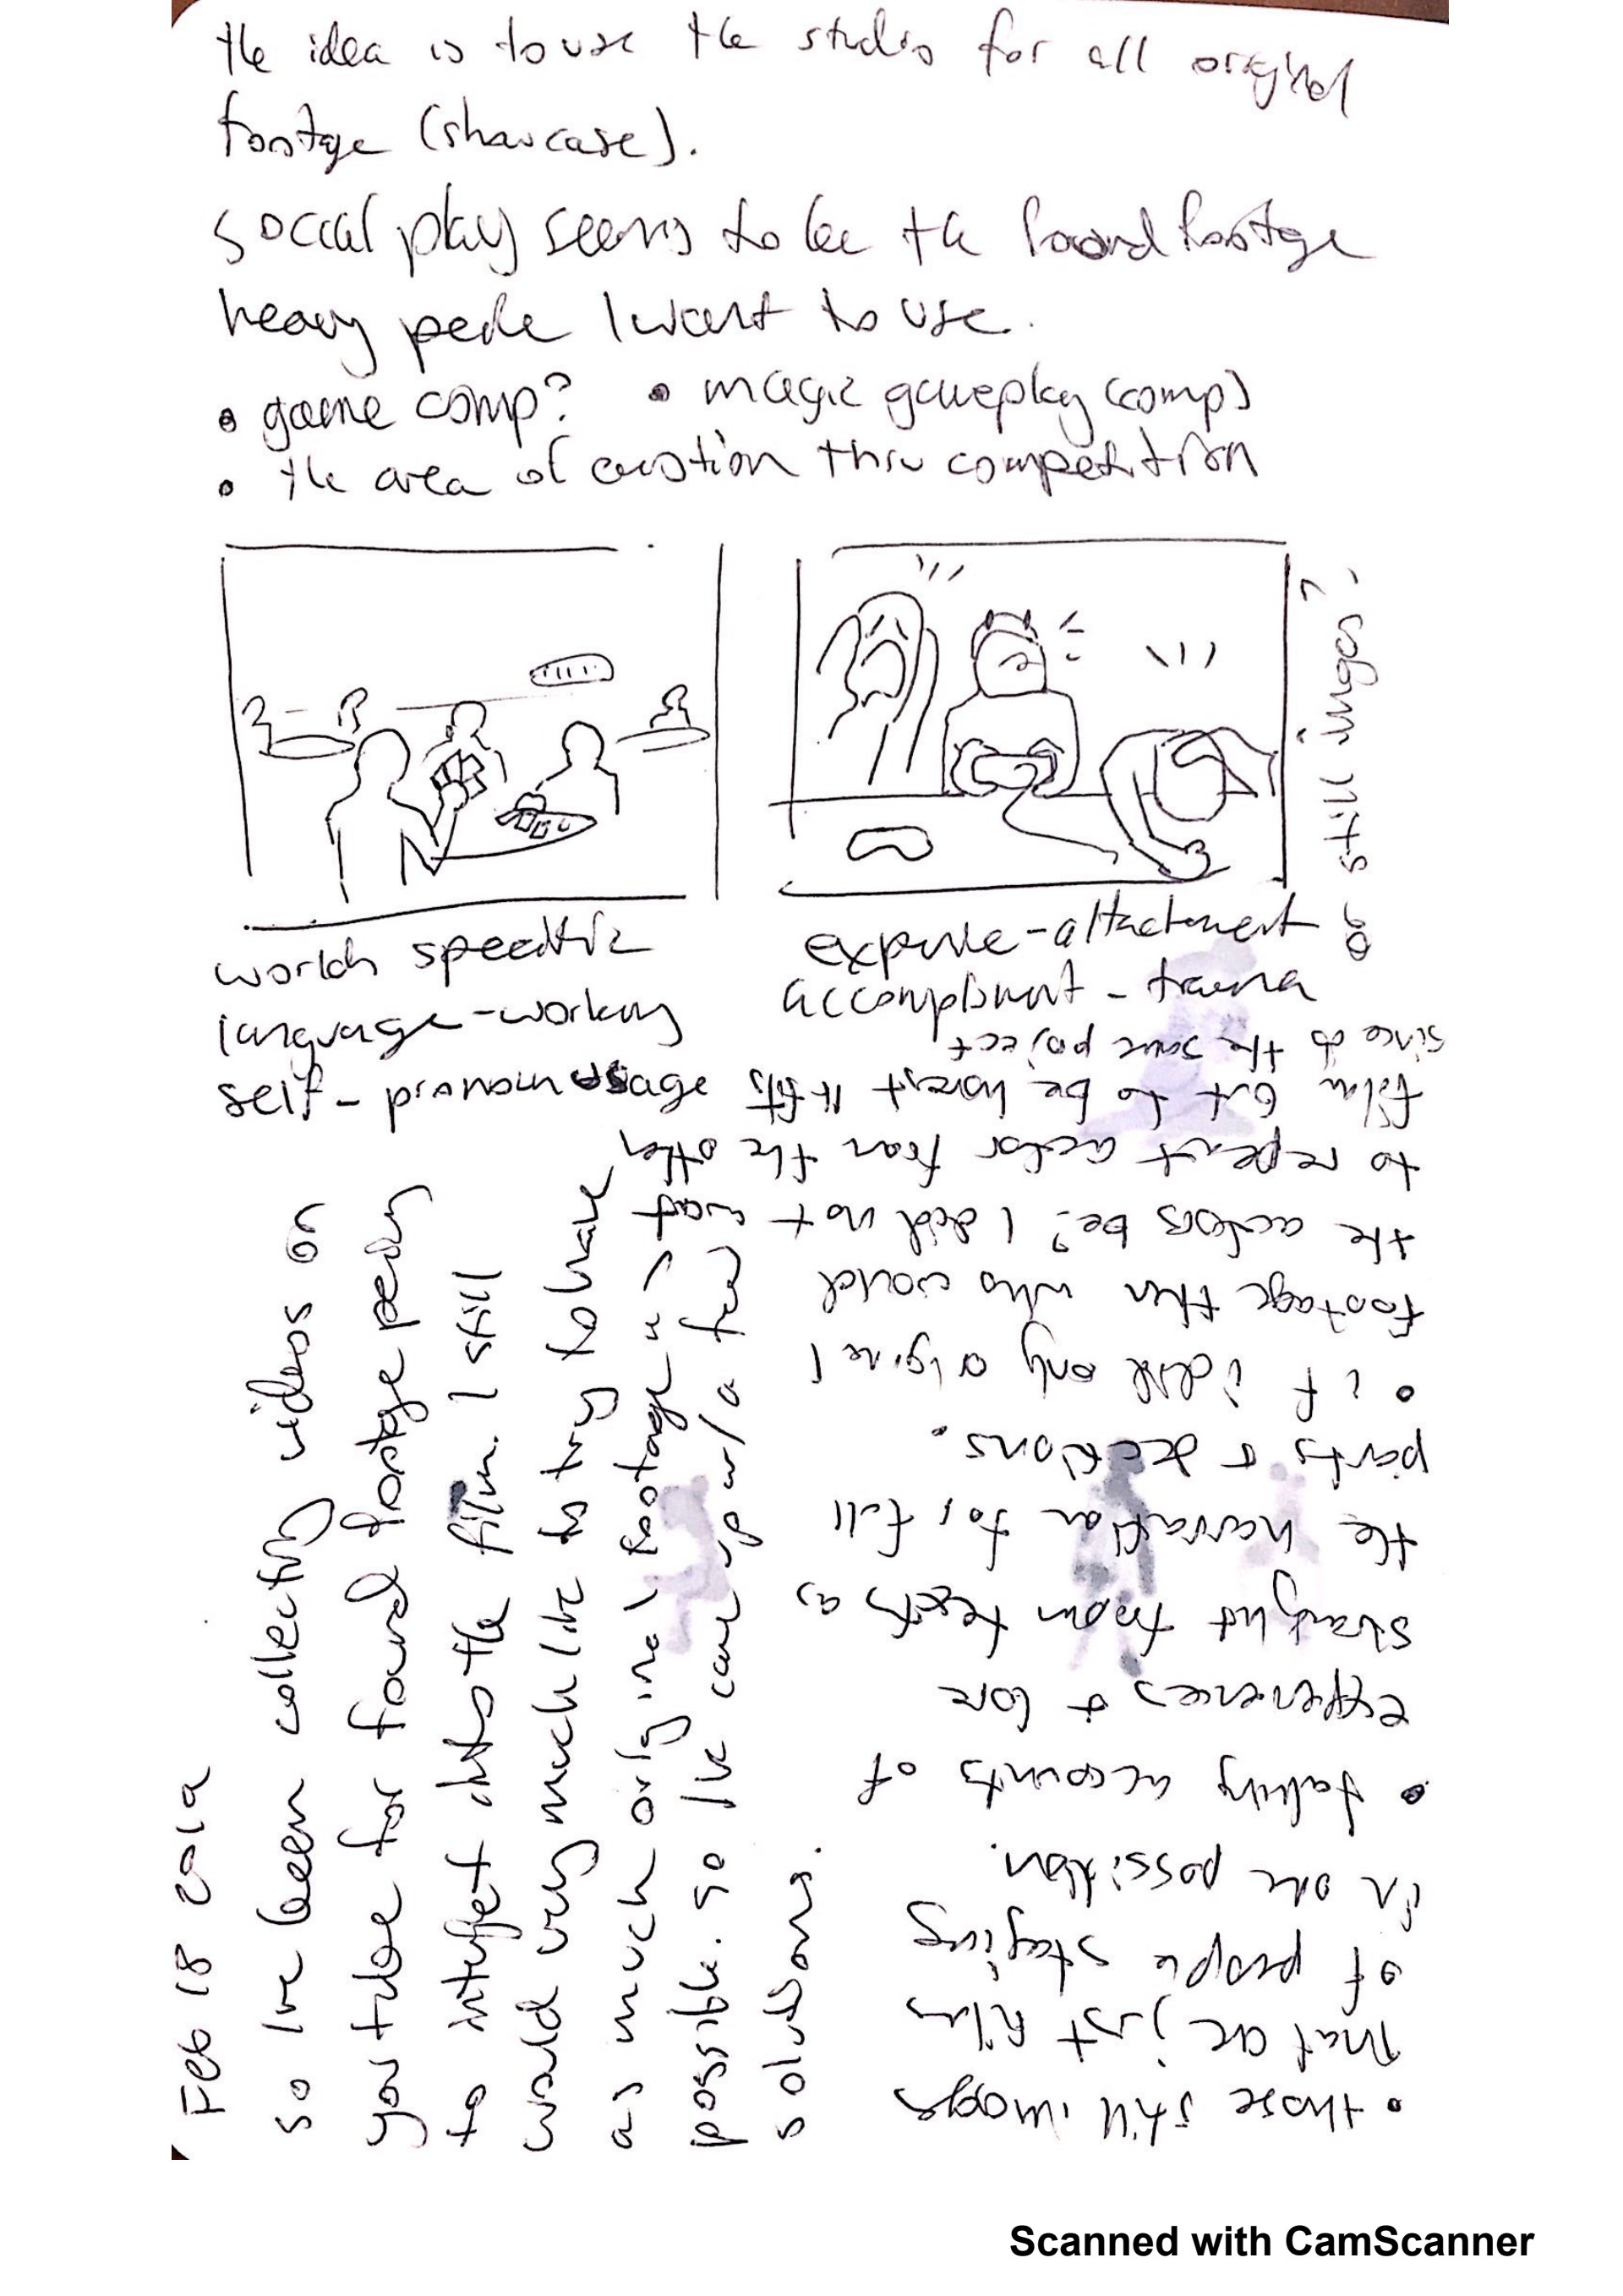 the idea is to use the studio for all original
footage (showcase).
social play seems to be the found footage
heavy I want to use.
• game comp? • magic gameplay (comp)
• the area of emotion thru competition
or still images?
world specific
language - working
self - pronoun usage
expose - attachment
accomplishment - trauma
Feb 18 2019
so I've been collecting videos on
youtube for found footage
to interject into the film. I still
would very much like to try to have
as much original footage as
possible. so I've came up w/ a few
solutions.
• those still images
that are just film
of people staying
in one position.
• taking accounts of
experiences + lore
straight from texts as
the narration for, full
parts + sections.
• if I did only original
footage then who would
the actors be? I did not want
to repeat actor from the other
film but to be honest it fits
since the same project